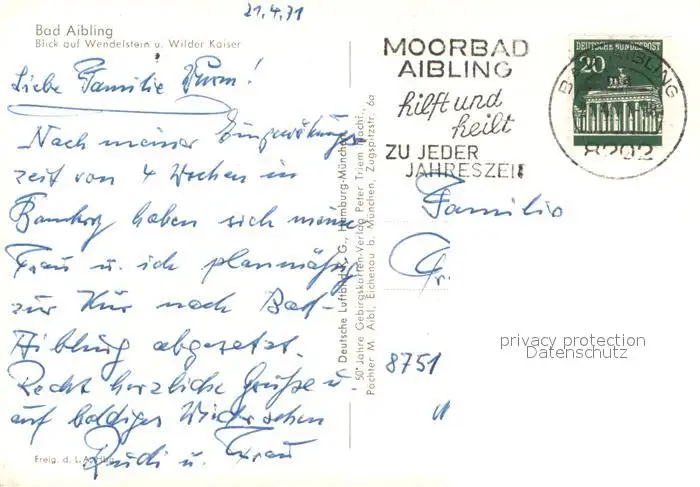 21.4.71
Bad Aibling
Blick auf Wendelstein u. Wilder Kaiser
Liebe Familie Wurm!
Nach meiner Eingewöhnungs
zeit von 4 Wochen in
Bamberg haben sich meine
Frau u. ich planmäßig
zur Kur nach Bad-
Aibling abgesetzt.
Recht herzliche Grüße u
auf baldiges Wiedersehen
Rudi u. Frau
Freig. d. L.A.
Deutsche Luftbild K. G., Hamburg-München
50 Jahre Gebirgskarten-Verlag Peter Triem Nachf.,
Pächter M. Aibl, Eichenau b. München, Zugspitzstr. 6a
MOORBAD
AIBLING
hilft und
heilt
ZU JEDER
JAHRESZEIT
DEUTSCHE BUNDESPOST
20
BAD AIBLING
8202
Familie
Fr.
8751
privacy protection
Datenschutz